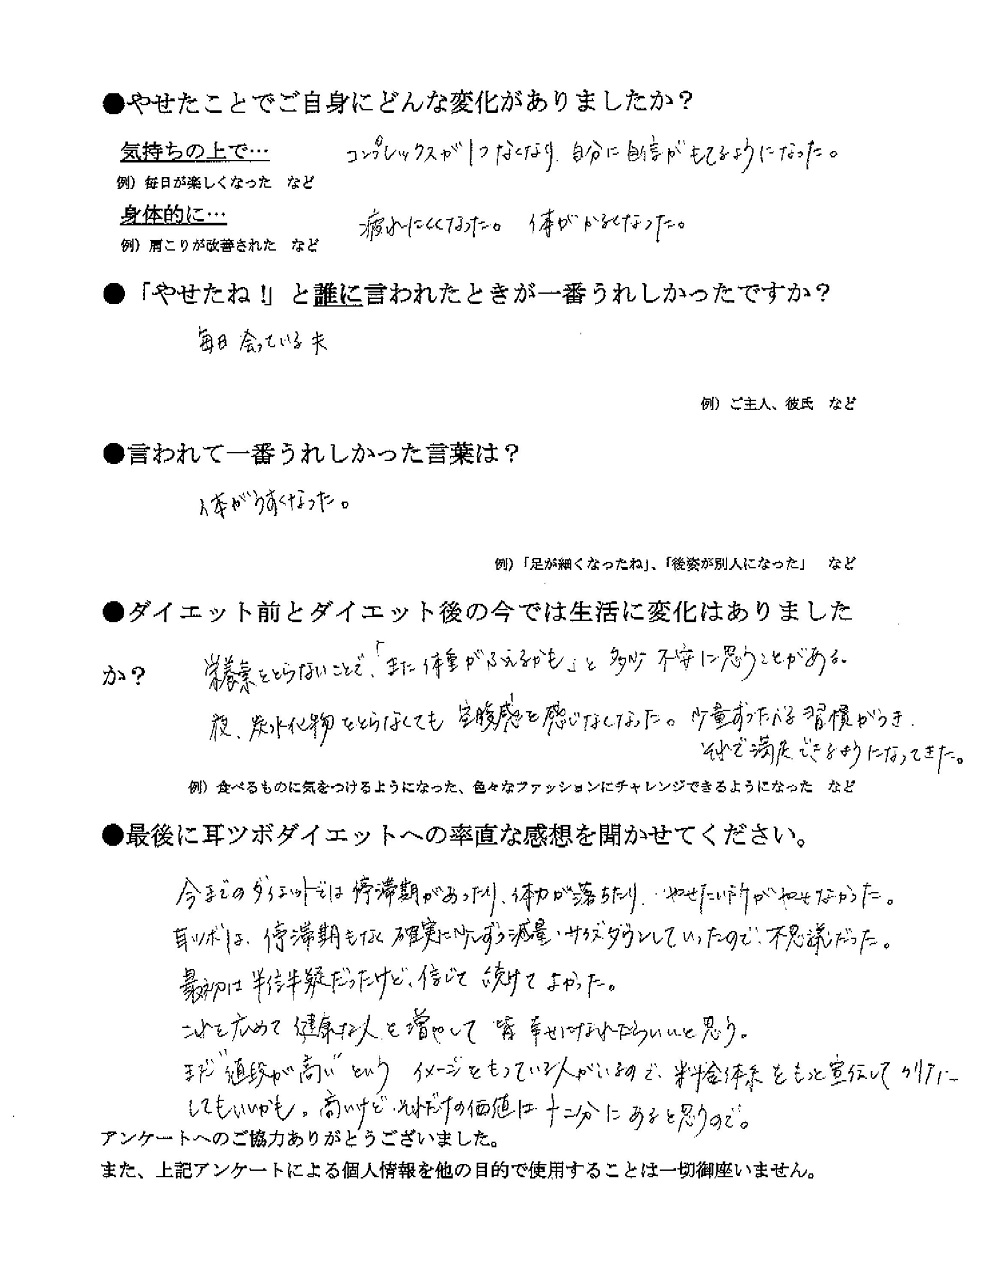 ●やせたことでご自身にどんな変化がありましたか？
気持ちの上で…
コンプレックスが1つなくなり、自分に自信がもてるようになった。
例）毎日が楽しくなった　など
身体的に…
疲れにくくなった。　体がかるくなった。
例）肩こりが改善された　など
●「やせたね！」と誰に言われたときが一番うれしかったですか？
毎日会っている夫
例）ご主人、彼氏　など
●言われて一番うれしかった言葉は？
体がうすくなった。
例）「足が細くなったね」、「後姿が別人になった」　など
●ダイエット前とダイエット後の今では生活に変化はありました
か？
栄養素をとらないことで、「また体重がふえるかも」と多少不安に思うことがある。
夜、炭水化物をとらなくても空腹感を感じなくなった。少量ずつたべる習慣がつき、
それで満足できるようになってきた。
例）食べるものに気をつけるようになった、色々なファッションにチャレンジできるようになった　など
●最後に耳ツボダイエットへの率直な感想を聞かせてください。
今までのダイエットでは停滞期があったり、体力が落ちたり、やせたい所がやせなかった。
耳ツボは、停滞期もなく確実に少しずつ減量・サイズダウンしていったので、不思議だった。
最初は半信半疑だったけど、信じて続けてよかった。
これを広めて健康な人を増やして皆幸せになれたらいいと思う。
まだ"値段が高い"というイメージをもっている人がいるので、料金体系をもっと宣伝してクリアに
してもいいかも。高いけど、それだけの価値は十二分にあると思うので。
アンケートへのご協力ありがとうございました。
また、上記アンケートによる個人情報を他の目的で使用することは一切御座いません。